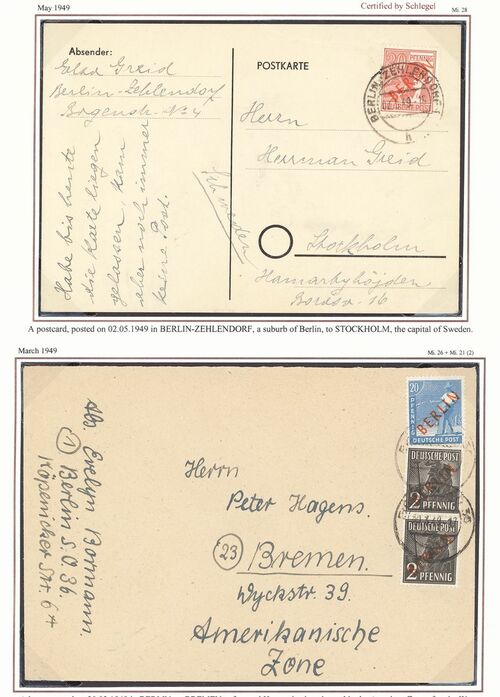 May 1949
Certified by Schlegel
Mi. 28
Absender:
Elad Greid
Berlin-Zehlendorf
No 4
POSTKARTE
PFENNIG
DEUTSCHE POST
BERLIN-ZEHLENDORF 1
h
Herrn
Herrman Greid
Stockholm
Hamarbyhöjden
16
Habe bis heute
die Karte liegen
gelassen, kam
aber noch immer
keine
A postcard, posted on 02.05.1949 in BERLIN-ZEHLENDORF, a suburb of Berlin, to STOCKHOLM, the capital of Sweden.
March 1949
Mi. 26 + Mi. 21 (2)
Abs. Evelyn Bormann.
① Berlin S.O 36
Köpenicker Str. 64
20
PFENNIG
BERLIN
DEUTSCHE POST
DEUTSCHE POST
2 PFENNIG
DEUTSCHE POST
2 PFENNIG
Herrn
Peter Hagens.
(23) Bremen.
Wyckstr. 39.
Amerikanische
Zone